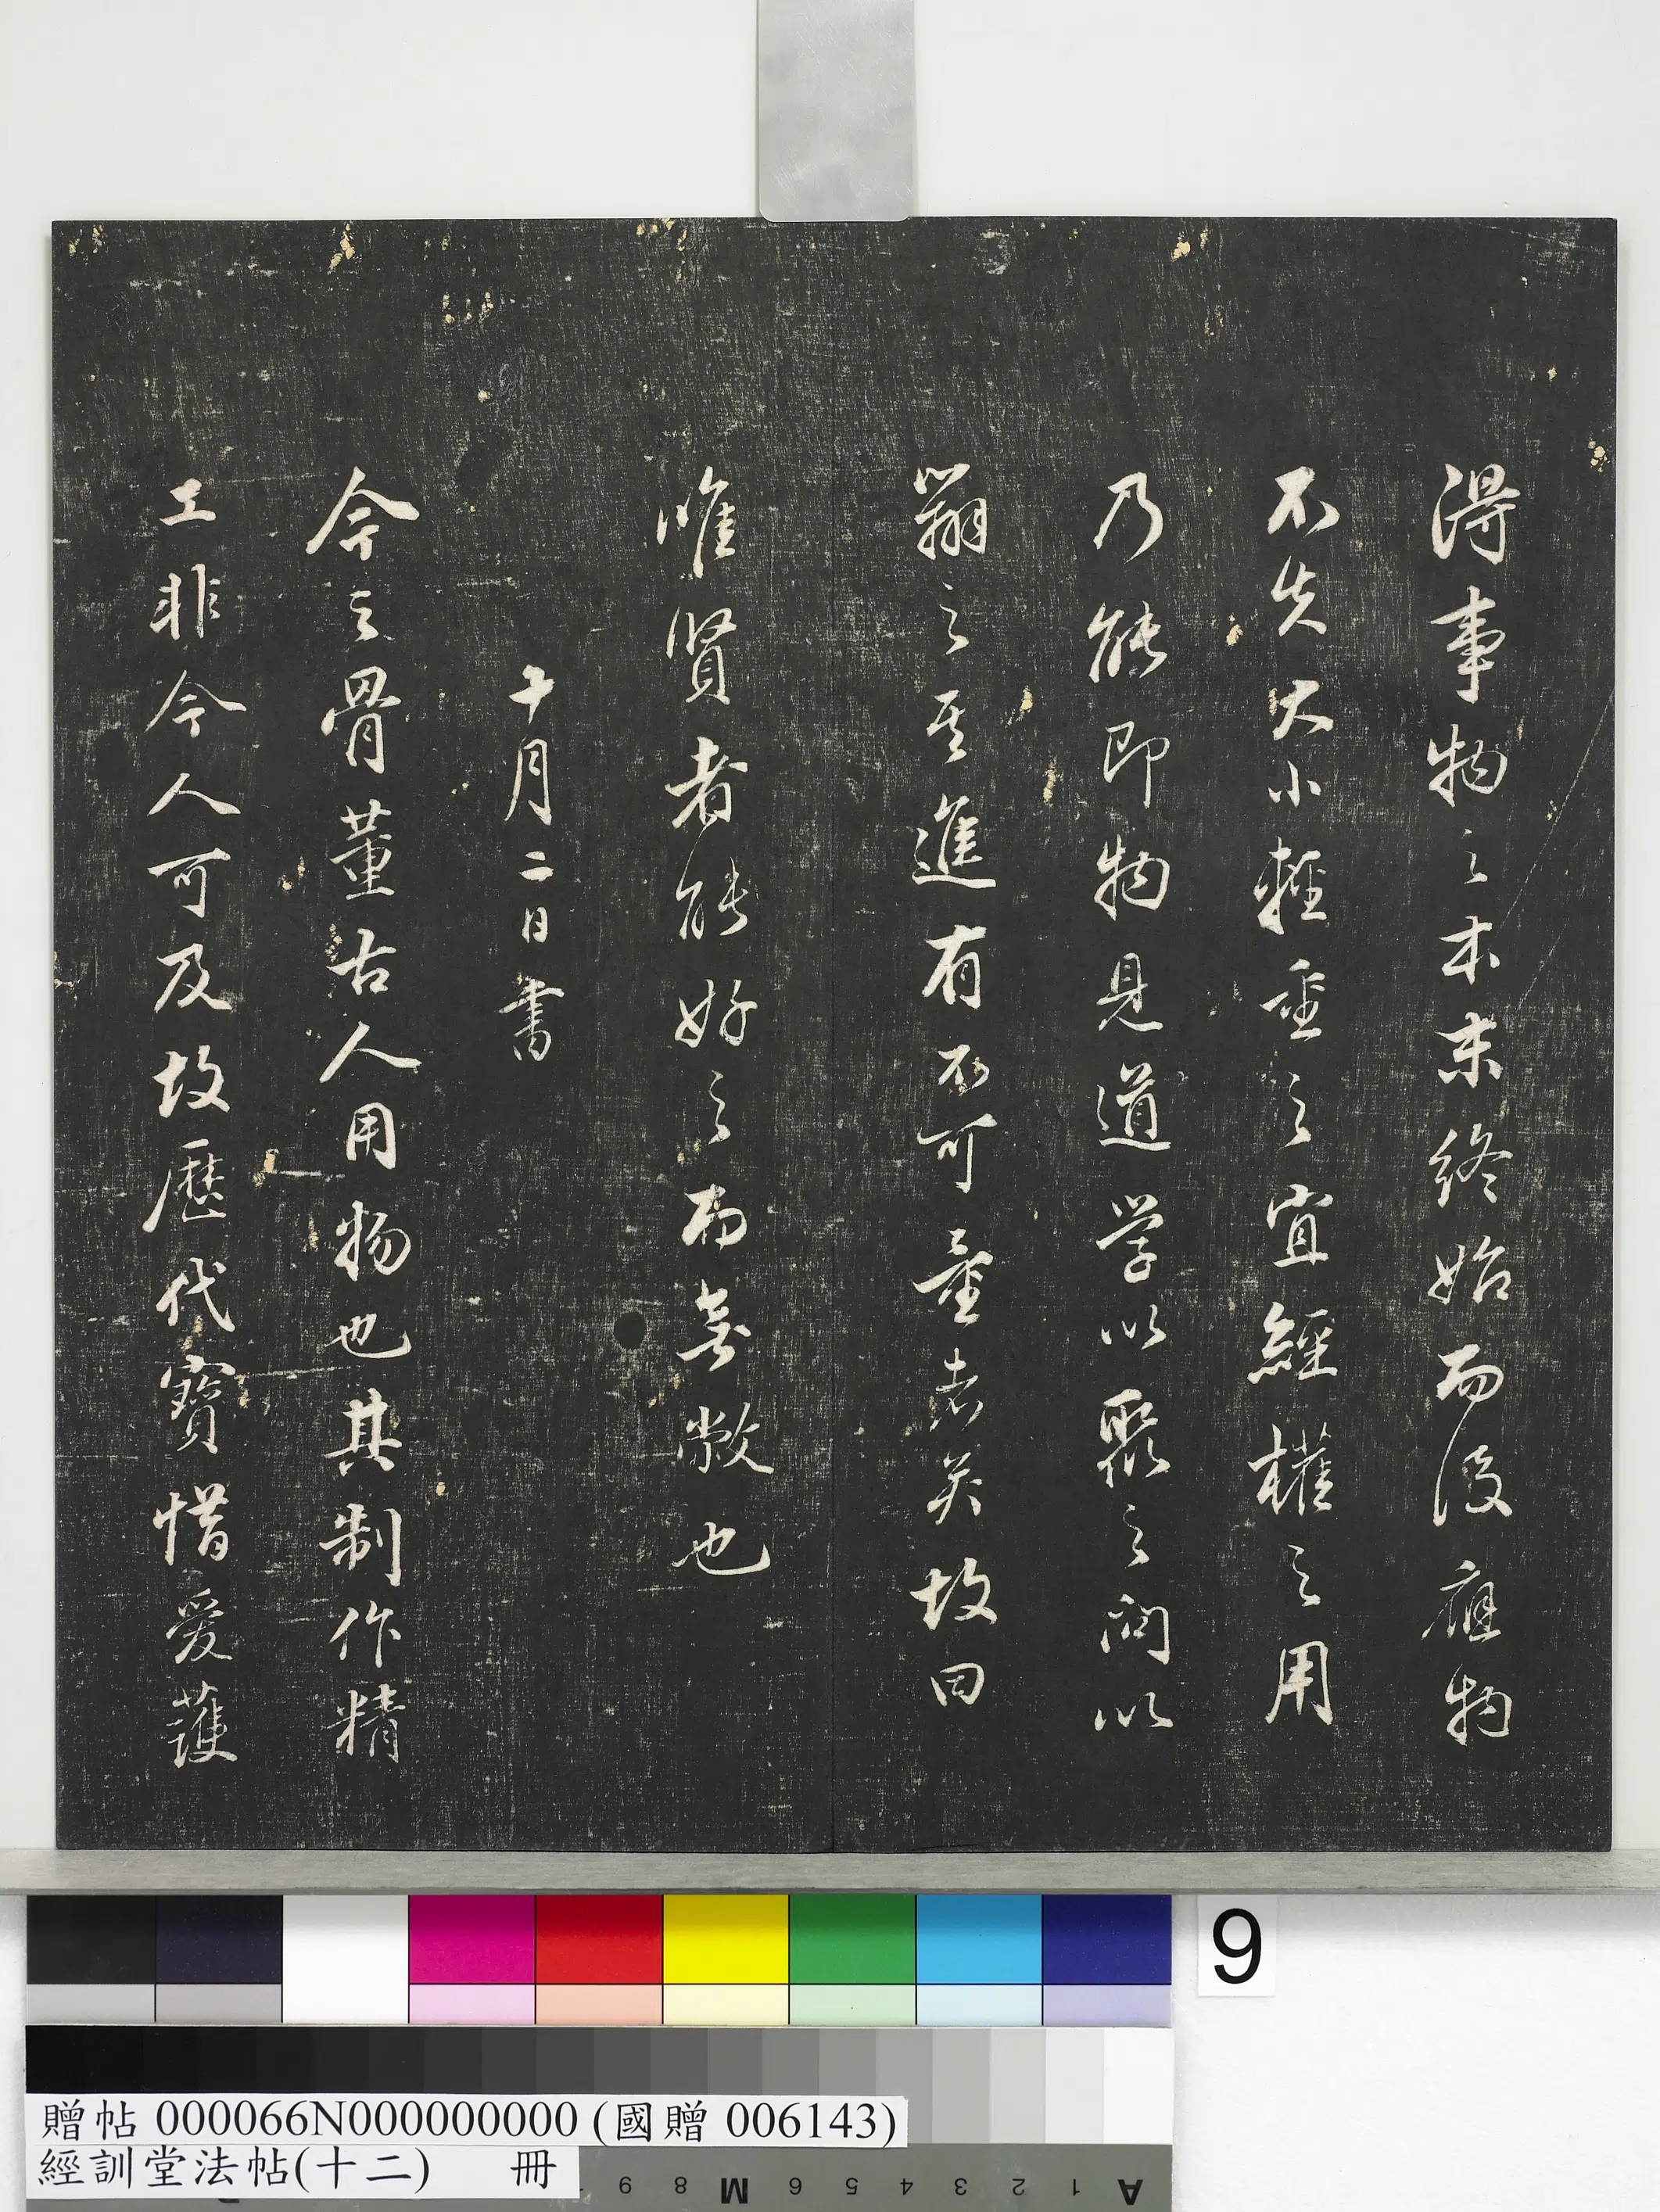 得事物之本末終始而後應物
不失大小輕重之宜經權之用
乃能即物見道學以聚之問以
辯之其進有不可量者矣故曰
唯賢者能好之而無敝也
十月二日書
今之骨董古人用物也其制作精
工非今人可及故歷代寶惜愛護
9
贈帖 000066N000000000 (國贈 006143)
經訓堂法帖(十二) 冊
A 1 2 3 4 5 6 M 8 9